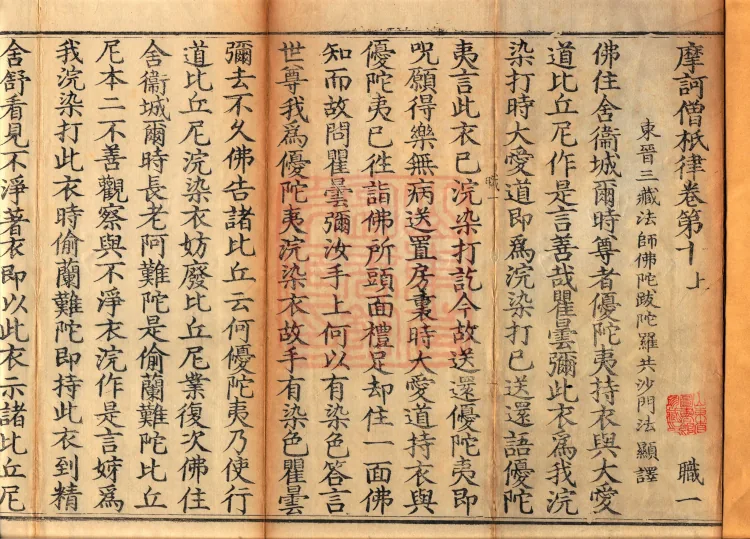 摩訶僧祇律卷第十 上 職一
東晉三藏法師佛陀跋陀羅共沙門法顯譯
佛住舍衞城爾時尊者優陀夷持衣與大愛
道比丘尼作是言善哉瞿曇彌此衣爲我浣
染打時大愛道即爲浣染打已送還語優陀
夷言此衣已浣染打訖今故送還優陀夷即
職一
呪願得樂無病送置房裏時大愛道持衣與
優陀夷已往詣佛所頭面禮足却住一面佛
知而故問瞿曇彌汝手上何以有染色答言
世尊我爲優陀夷浣染衣故手有染色瞿曇
彌去不久佛告諸比丘云何優陀夷乃使行
道比丘尼浣染衣妨廢比丘尼業復次佛住
舍衞城爾時長老阿難陀是偷蘭難陀比丘
尼本二不善觀察與不淨衣浣作是言姊爲
我浣染打此衣時偷蘭難陀即持此衣到精
舍舒看見不淨著衣即以此衣示諸比丘尼